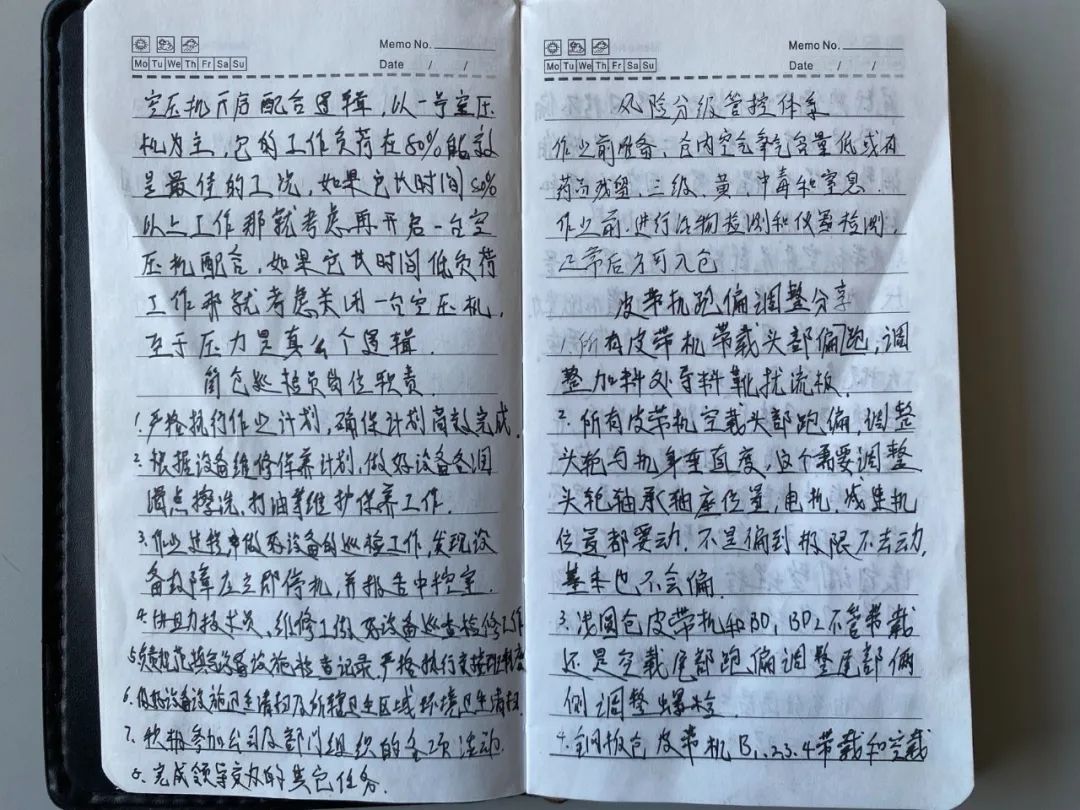 Memo No.
Mo Tu We Th Fr Sa Su
Date / /
空压机开启配合逻辑,以一号空压
机为主,它的工作负荷在80%能效
是最佳的工况,如果它长时间80%
以上工作那就考虑再开启一台空
压机配合,如果它长时间低负荷
工作那就考虑关闭一台空压机,
至于压力是真么个逻辑.
筒仓巡检员岗位职责
1.严格执行作业计划,确保计划高效完成.
2.根据设备维修保养计划,做好设备各润
滑点擦洗、打油等维护保养工作.
3.作业过程中做好设备的巡检工作,发现设
备故障应立即停机,并报告中控室.
4.协助技术员、维修工做好设备巡查检修工作
5.负责规范填写设备设施检查记录,严格执行交接班制度
6.做好设备设施卫生清扫及所辖卫生区域环境卫生清扫.
7.积极参加公司及部门组织的各项活动.
8.完成领导交办的其它任务.
Memo No.
Mo Tu We Th Fr Sa Su
Date / /
风险分级管控体系
作业前准备:仓内空气氧气含量低或有
药剂残留,三级、黄 中毒和窒息.
作业前.进行活物检测和仪器检测.
正常后方可入仓.
皮带机跑偏调整分享
1.所有皮带机带载头部偏跑,调
整加料处导料靴扰流板.
2.所有皮带机空载头部跑偏,调整
头轮与机身垂直度,这个需要调整
头轮轴承轴座位置,电机、减速机
位置都要动.不是偏到极限不去动,
基本也不会偏.
3.浅圆仓皮带机和BD1,BD2不管带载
还是空载尾部跑偏调整尾部俩
侧调整螺栓.
4.钢板仓皮带机B1.2.3.4带载和空载